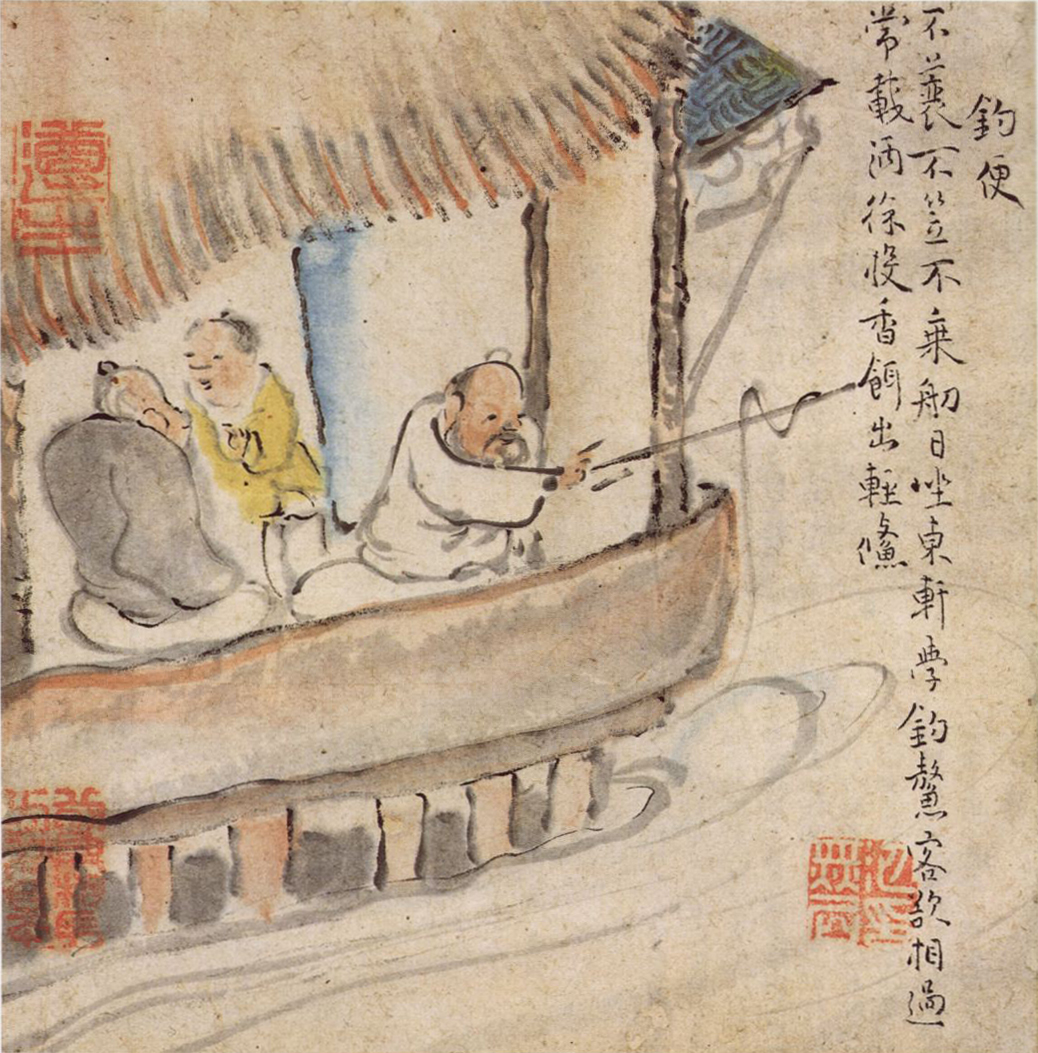 釣便
不蓑不笠不乗舠日坐東軒学釣鰲客欲相過
常載酒徐投香餌出輕鯈